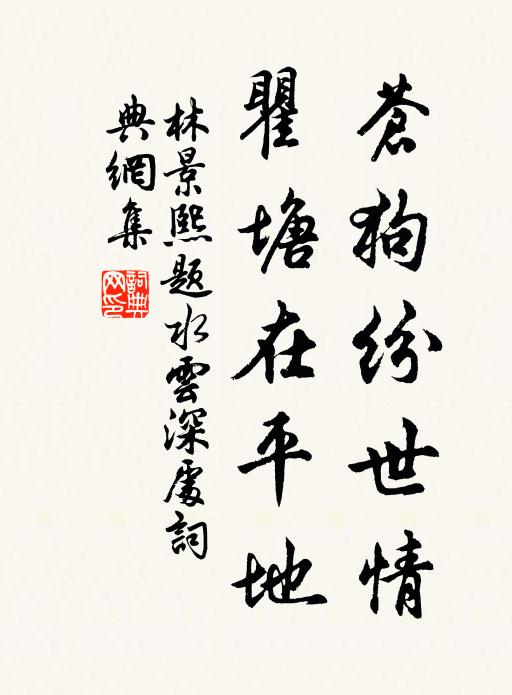 蒼狗紛世情
瞿塘在平地
林景熙题水雲深處詞
典網集
詞典
网印